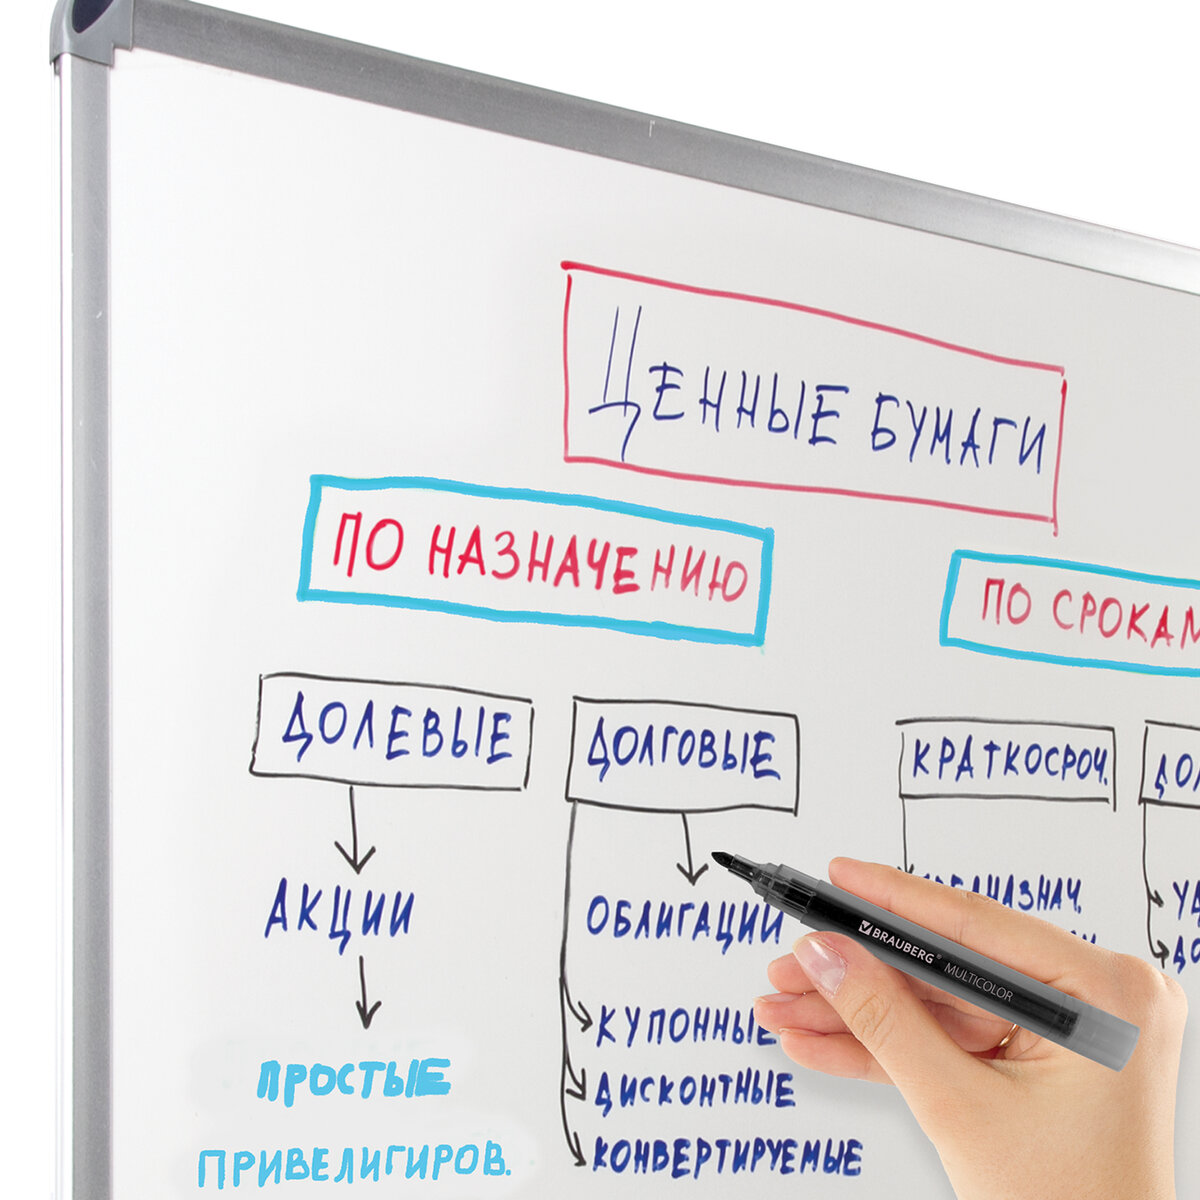 ЦЕННЫЕ БУМАГИ
ПО НАЗНАЧЕНИЮ
ПО СРОКАМ
ДОЛЕВЫЕ
ДОЛГОВЫЕ
КРАТКОСРОЧ.
АКЦИИ
ОБЛИГАЦИИ
ПРОСТЫЕ
ПРИВЕЛИГИРОВ.
КУПОННЫЕ
ДИСКОНТНЫЕ
КОНВЕРТИРУЕМЫЕ
BRAUBERG® MULTICOLOR